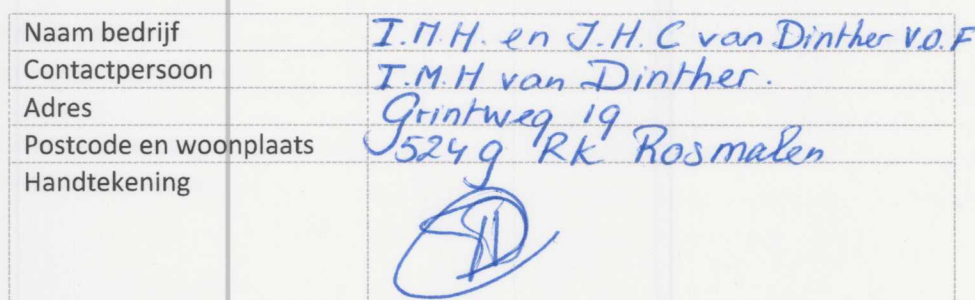 Naam bedrijf I.M.H. en J.H.C van Dinther V.O.F
Contactpersoon I.M.H van Dinther.
Adres Grintweg 19
Postcode en woonplaats 5249 RK Rosmalen
Handtekening